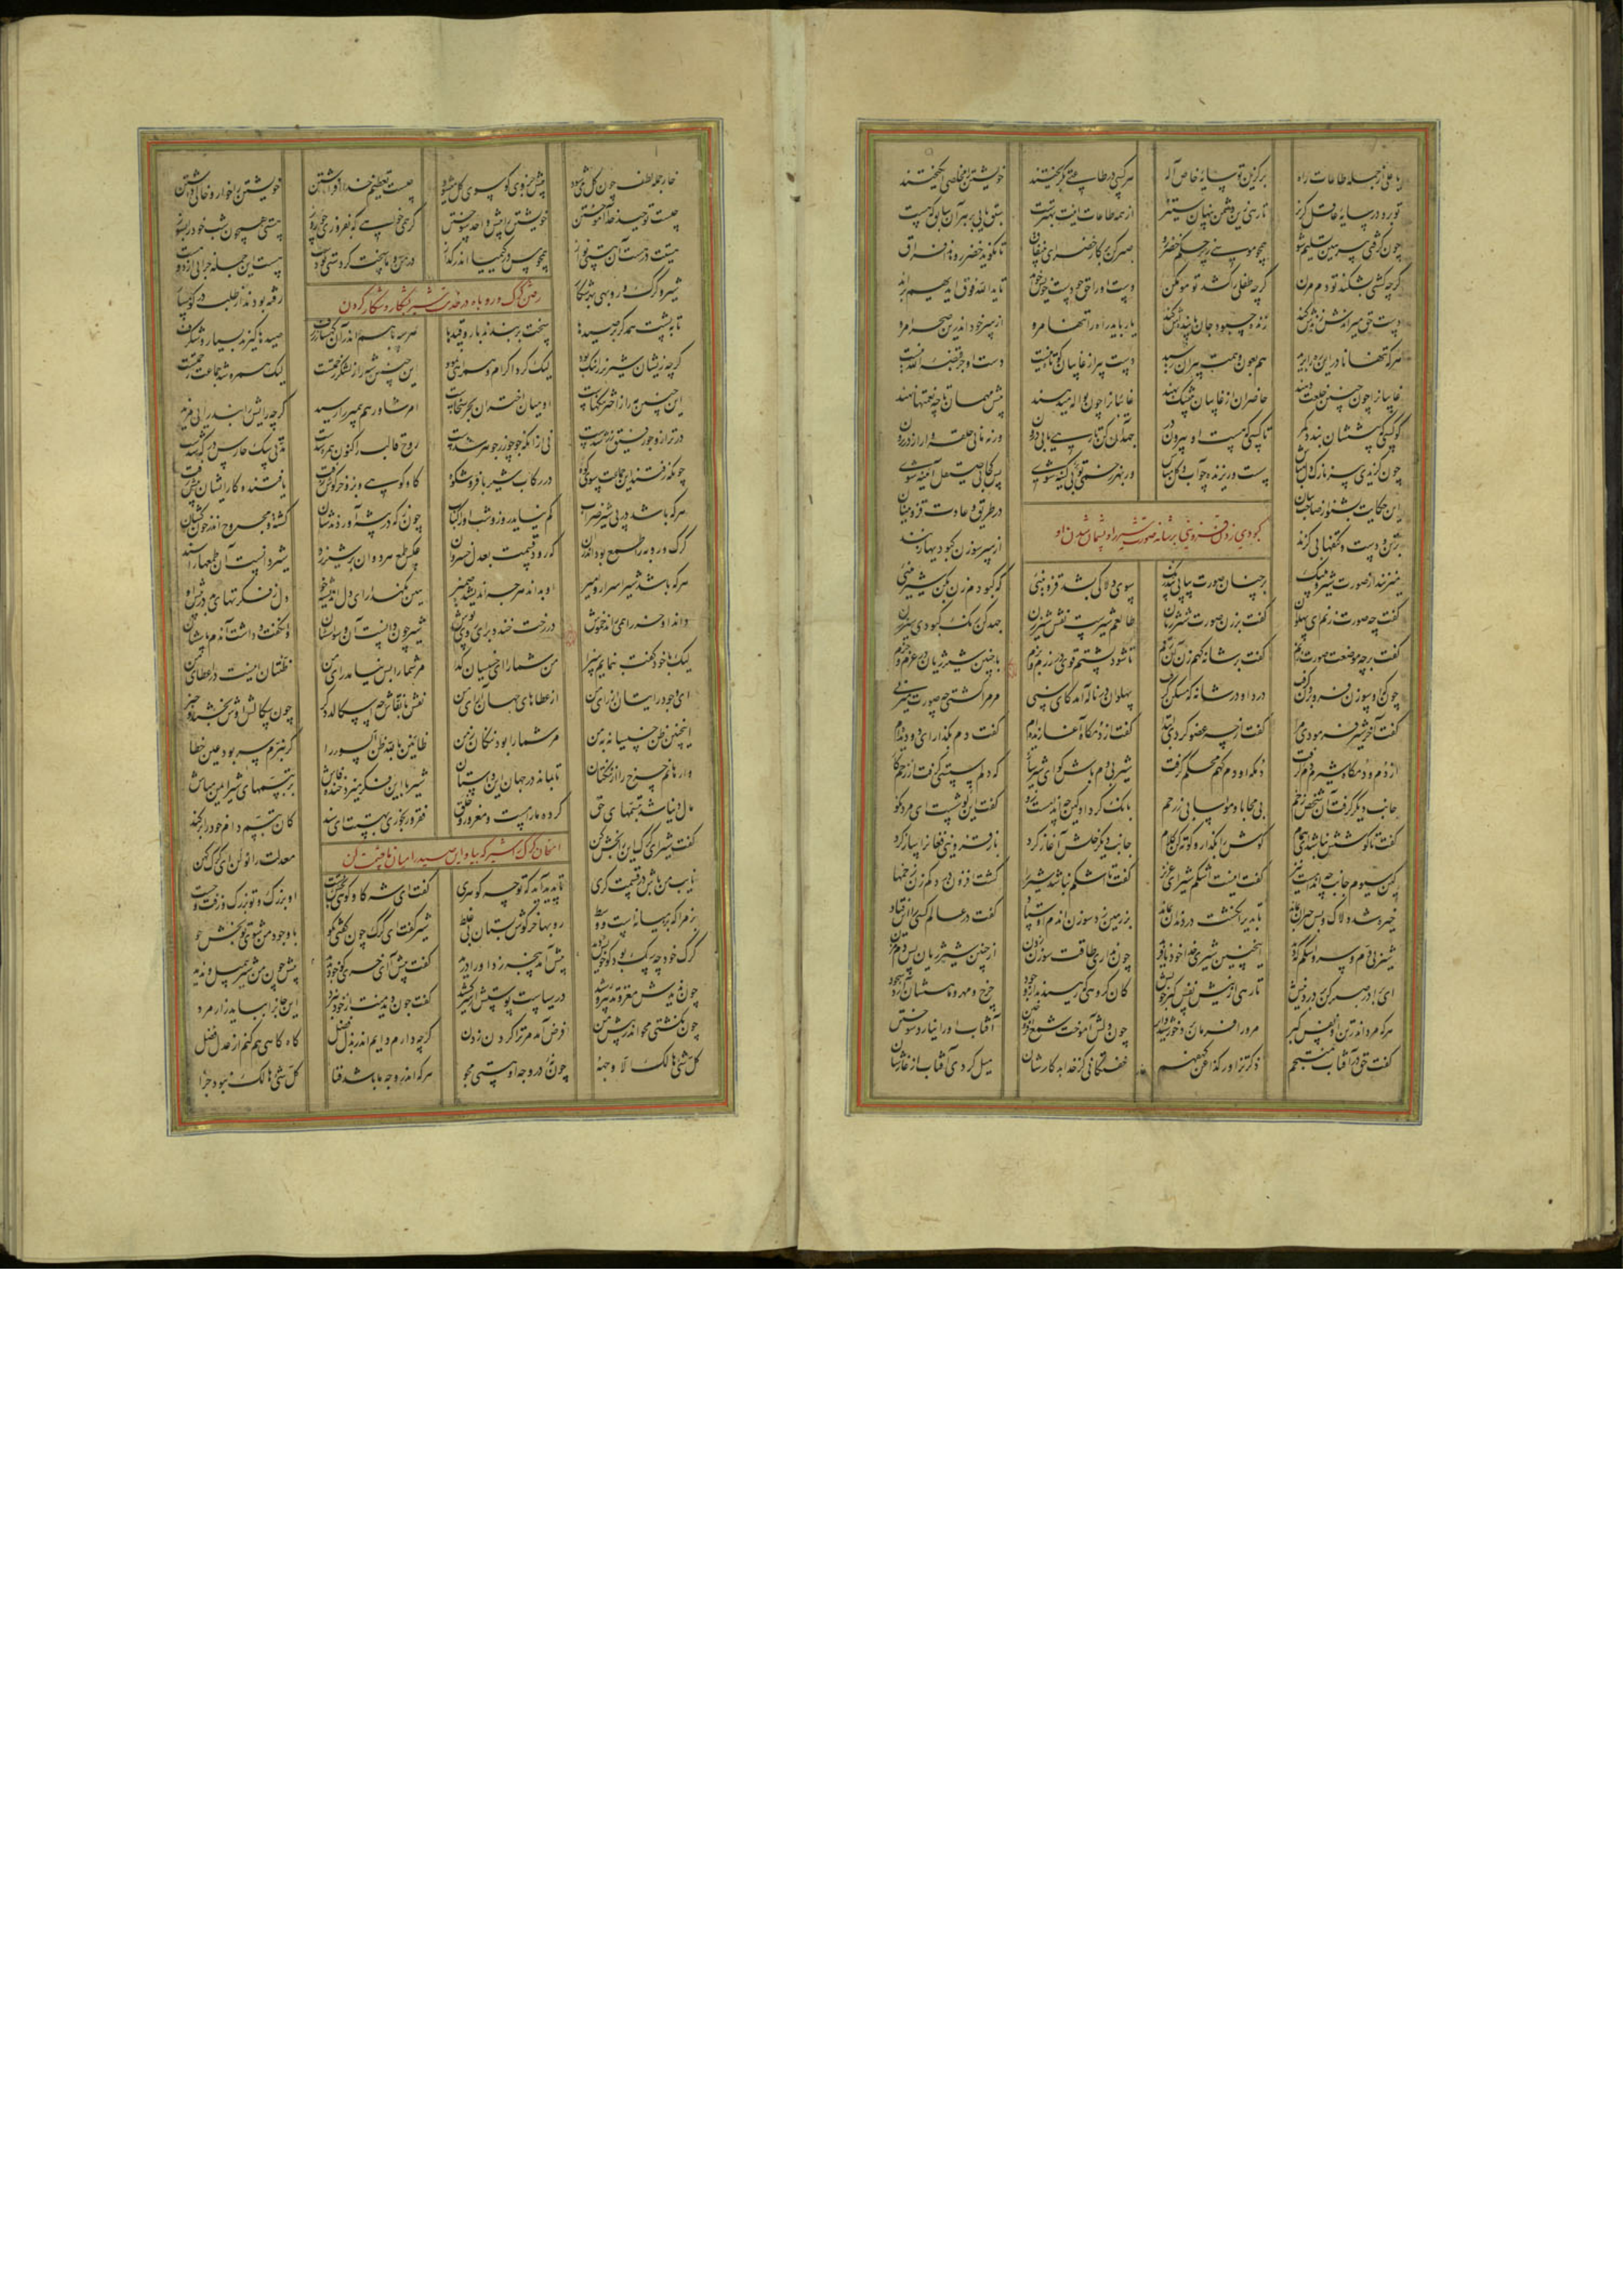 یا علی از جمله طاعات راه برگزین تو سایه خاص اله هر کسی در طاعتی بگریختند خویشتن را مخلصی انگیختند
تو برو در سایه عاقل گریز تا رهی زین دشمن پنهان ستیز از همه طاعات اینت بهترست سبق یابی بر هر آن سابق که هست
چون گرفتی پیر هین تسلیم شو همچو موسی زیر حکم خضر رو صبر کن بر کار خضری بی نفاق تا نگوید خضر رو هذا فراق
گرچه کشتی بشکند تو دم مزن گرچه طفلی را کشد تو مو مکن دست او را حق چو دست خویش خواند تا یدالله فوق ایدیهم براند
دست حق میراندش زنده‌ش کند زنده چه بود جان پاینده‌ش کند یار باید راه را تنها مرو از سر خود اندرین صحرا مرو
هر که تنها نادرا این ره برید هم بعون همت پیران رسید دست پیر از غایبان کوتاه نیست دست او جز قبضه الله نیست
غایبان را چون چنین خلعت دهند حاضران از غایبان بی‌شک بهند غایبان را چون نواله میدهند پیش مهمان تا چه نعمتها نهند
کو کسی کو پیششان بندد کمر تا کسی کو هست او بیرون در جهد آن کن تا رهی یابی درون ورنه مانی حلقه وار از در برون
چون گزیدی پیر نازک دل مباش سست و ریزنده چو آب و گل مباش ور بهر زخمی تو پر کینه شوی پس کجا بی صیقل آینه شوی
این حکایت بشنو از صاحب بیان در طریق و عادت قزوینیان
بر تن و دست و کتفها بی گزند از سر سوزن کبودیها زنند
کبودی زدن قزوینی بر شانه صورت شیر را و پشیمان شدن او
بر چنان صورت پیاپی بی گزند سوی دلاکی بشد قزوینئی که کبودم زن بکن شیرینئی
گفت چه صورت زنم ای پهلوان گفت بر زن صورت شیر ژیان طالعم شیرست نقش شیر زن جهد کن رنگ کبودی سیر زن
گفت بر چه موضعت صورت زنم گفت بر شانه گهم زن آن رقم تا شود پشتم قوی در رزم و بزم با چنین شیر ژیان در عزم و حزم
چونکه او سوزن فرو بردن گرفت درد او در شانه گه مسکن گرفت پهلوان در ناله آمد کای سنی مر مرا کشتی چه صورت میزنی
گفت آخر شیر فرمودی مرا گفت از چه عضو کردی ابتدا گفت از دمگاه آغازیده‌ام گفت دم بگذار ای دو دیده‌ام
از دم و دمگاه شیرم دم گرفت دمگه او دمگهم محکم گرفت شیر بی دم باش گو ای شیر ساز که دلم سستی گرفت از زخم گاز
جانب دیگر گرفت آن شخص زخم بی محابا و مواسایی ز رحم بانگ کرد او کین چه اندامست ازو گفت این گوشست ای مرد نکو
گفت تا گوشش نباشد ای حکیم گوش را بگذار و کوته کن گلیم جانب دیگر خلش آغاز کرد باز قزوینی فغان را ساز کرد
کین سیوم جانب چه اندامست نیز گفت اینست اشکم شیر ای عزیز گفت تا اشکم نباشد شیر را گشت افزون درد کم زن زخمها
خیره شد دلاک و بس حیران بماند تا بدیر انگشت در دندان بماند بر زمین زد سوزن آن دم اوستاد گفت در عالم کسی را این فتاد
شیر بی دم و سر و اشکم که دید اینچنین شیری خدا خود نافرید چون نداری طاقت سوزن زدن از چنین شیر ژیان پس دم مزن
ای برادر صبر کن بر درد نیش تا رهی از نیش نفس گبر خویش کان گروهی که رهیدند از وجود چرخ و مهر و ماهشان آرد سجود
هر که مرد اندر تن او نفس گبر مر ورا فرمان برد خورشید و ابر چون دلش آموخت شمع افروختن آفتاب او را نیارد سوختن
گفت حق در آفتاب منتجم ذکر تزاور کذا عن کهفهم خفتگانی کز خدا بد کارشان میل کردی آفتاب از غارشان
خار جمله لطف چون گل میشود پیش جزوی کو سوی کل میشود چیست تعظیم خدا افراشتن خویشتن را خوار و خاکی داشتن
چیست توحید خدا آموختن خویشتن را پیش واحد سوختن گر همی خواهی که بفروزی چو روز هستی همچون شب خود را بسوز
هستیت در هست آن هستی نواز همچو مس در کیمیا اندر گداز در من و ما سخت کردستی دو دست هست این جمله خرابی از دو هست
رفتن گرگ و روباه در خدمت شیر بشکار و شکار کردن
شیر و گرگ و روبهی بهر شکار رفته بودند از طلب در کوهسار
تا به پشت همدگر بر صیدها سخت بر بندند بار و قیدها هر سه با هم اندر آن صحرای ژرف صیدها گیرند بسیار و شگرف
گرچه زیشان شیر نر را ننگ بود لیک کرد اکرام و همراهی نمود این چنین شه را ز لشکر زحمتست لیک همره شد جماعت رحمتست
این چنین مه را ز اختر ننگهاست او میان اختران بهر سخاست امر شاورهم پیمبر را رسید گرچه رایش را نبد رایی مزید
در ترازو جو رفیق زر شدست نی از آنکه جو چو زر جوهر شدست روح قالب را کنون همره شدست مدتی سگ حارس درگه شدست
چونکه رفتند این جماعت سوی کوه در رکاب شیر با فر و شکوه گاو کوهی و بز و خرگوش زفت یافتند و کار ایشان پیش رفت
هر که باشد در پی شیر حراب کم نیاید روز و شب او را کباب چون ز که در بیشه آوردندشان کشته و مجروح و اندر خون کشان
گرگ و روبه را طمع بود اندر آن که رود قسمت بعدل خسروان عکس طمع هر دوان بر شیر زد شیر دانست آن طمعها را سند
هر که باشد شیر اسرار و امیر او بداند هرچه اندیشد ضمیر هین نگهدار ای دل اندیشه خو دل ز فکرتهای بد در پیش او
داند او خر را همی راند خموش در رخت خندد برای روی پوش شیر چون دانست آن وسواسشان وا نگفت و داشت آن دم پاسشان
لیک با خود گفت بنمایم سزا مر شما را ای خسیسان گدا مر شما را بس نیامد رای من ظنتان اینست در اعطای من
ای وجود رایتان از رای من از عطاهای جهان آرای من نقش با نقاش چه سگالد دگر چون سگالش اوش بخشید و خبر
اینچنین ظن خسیسانه به من مر شما را بود ننگان زمن ظانین بالله ظن السوء را گر نبرم سر بود عین خطا
وارهانم چرخ را از ننگتان تا بماند در جهان این داستان شیر با این فکر میزد خنده فاش بر تبسمهای شیر ایمن مباش
مال دنیا شد تبسمهای حق کرد ما را مست و مغرور و خلق فقر و رنجوری بهستت ای سند کان تبسم دام خود را بر کند
امتحان کردن شیر گرگ را که بیا و این صید را میان ما قسمت کن
گفت شیر ای گرگ این را بخش کن معدلت را نو کن ای گرگ کهن
نایب من باش در قسمت گری تا پدید آید که تو چه گوهری گفت ای شه گاو کوهی بخش تست او بزرگ و تو بزرگ و زفت و چست
بز مرا که بز میانه‌ست و وسط روبها خرگوش بستان بی غلط شیر گفت ای گرگ چون گفتی بگو با وجود من تو گویی بخش جو
گرگ خود چه سگ بود کو خویش دید پیش چون من شیر بی مثل و ندید گفت پیش آ ای خری کو خود خرید پیش آمد پنجه زد او را درید
چون ندیدش مغز و تدبیر رشید در سیاست پوستش از سر کشید گفت چون دیدِ منت از خود نبرد این چنین جان را بباید زار مرد
چون نگشتی محو اندر پیش من فرض آمد مر ترا گردن زدن گرچه دارم دایم اندر بذل فضل گاه گاهی هم کنم از عدل فصل
کل شیء هالک الا وجهه چون نه در وجه او هستی مجو هر که اندر وجه ما باشد فنا کل شیء هالک نبود جزا